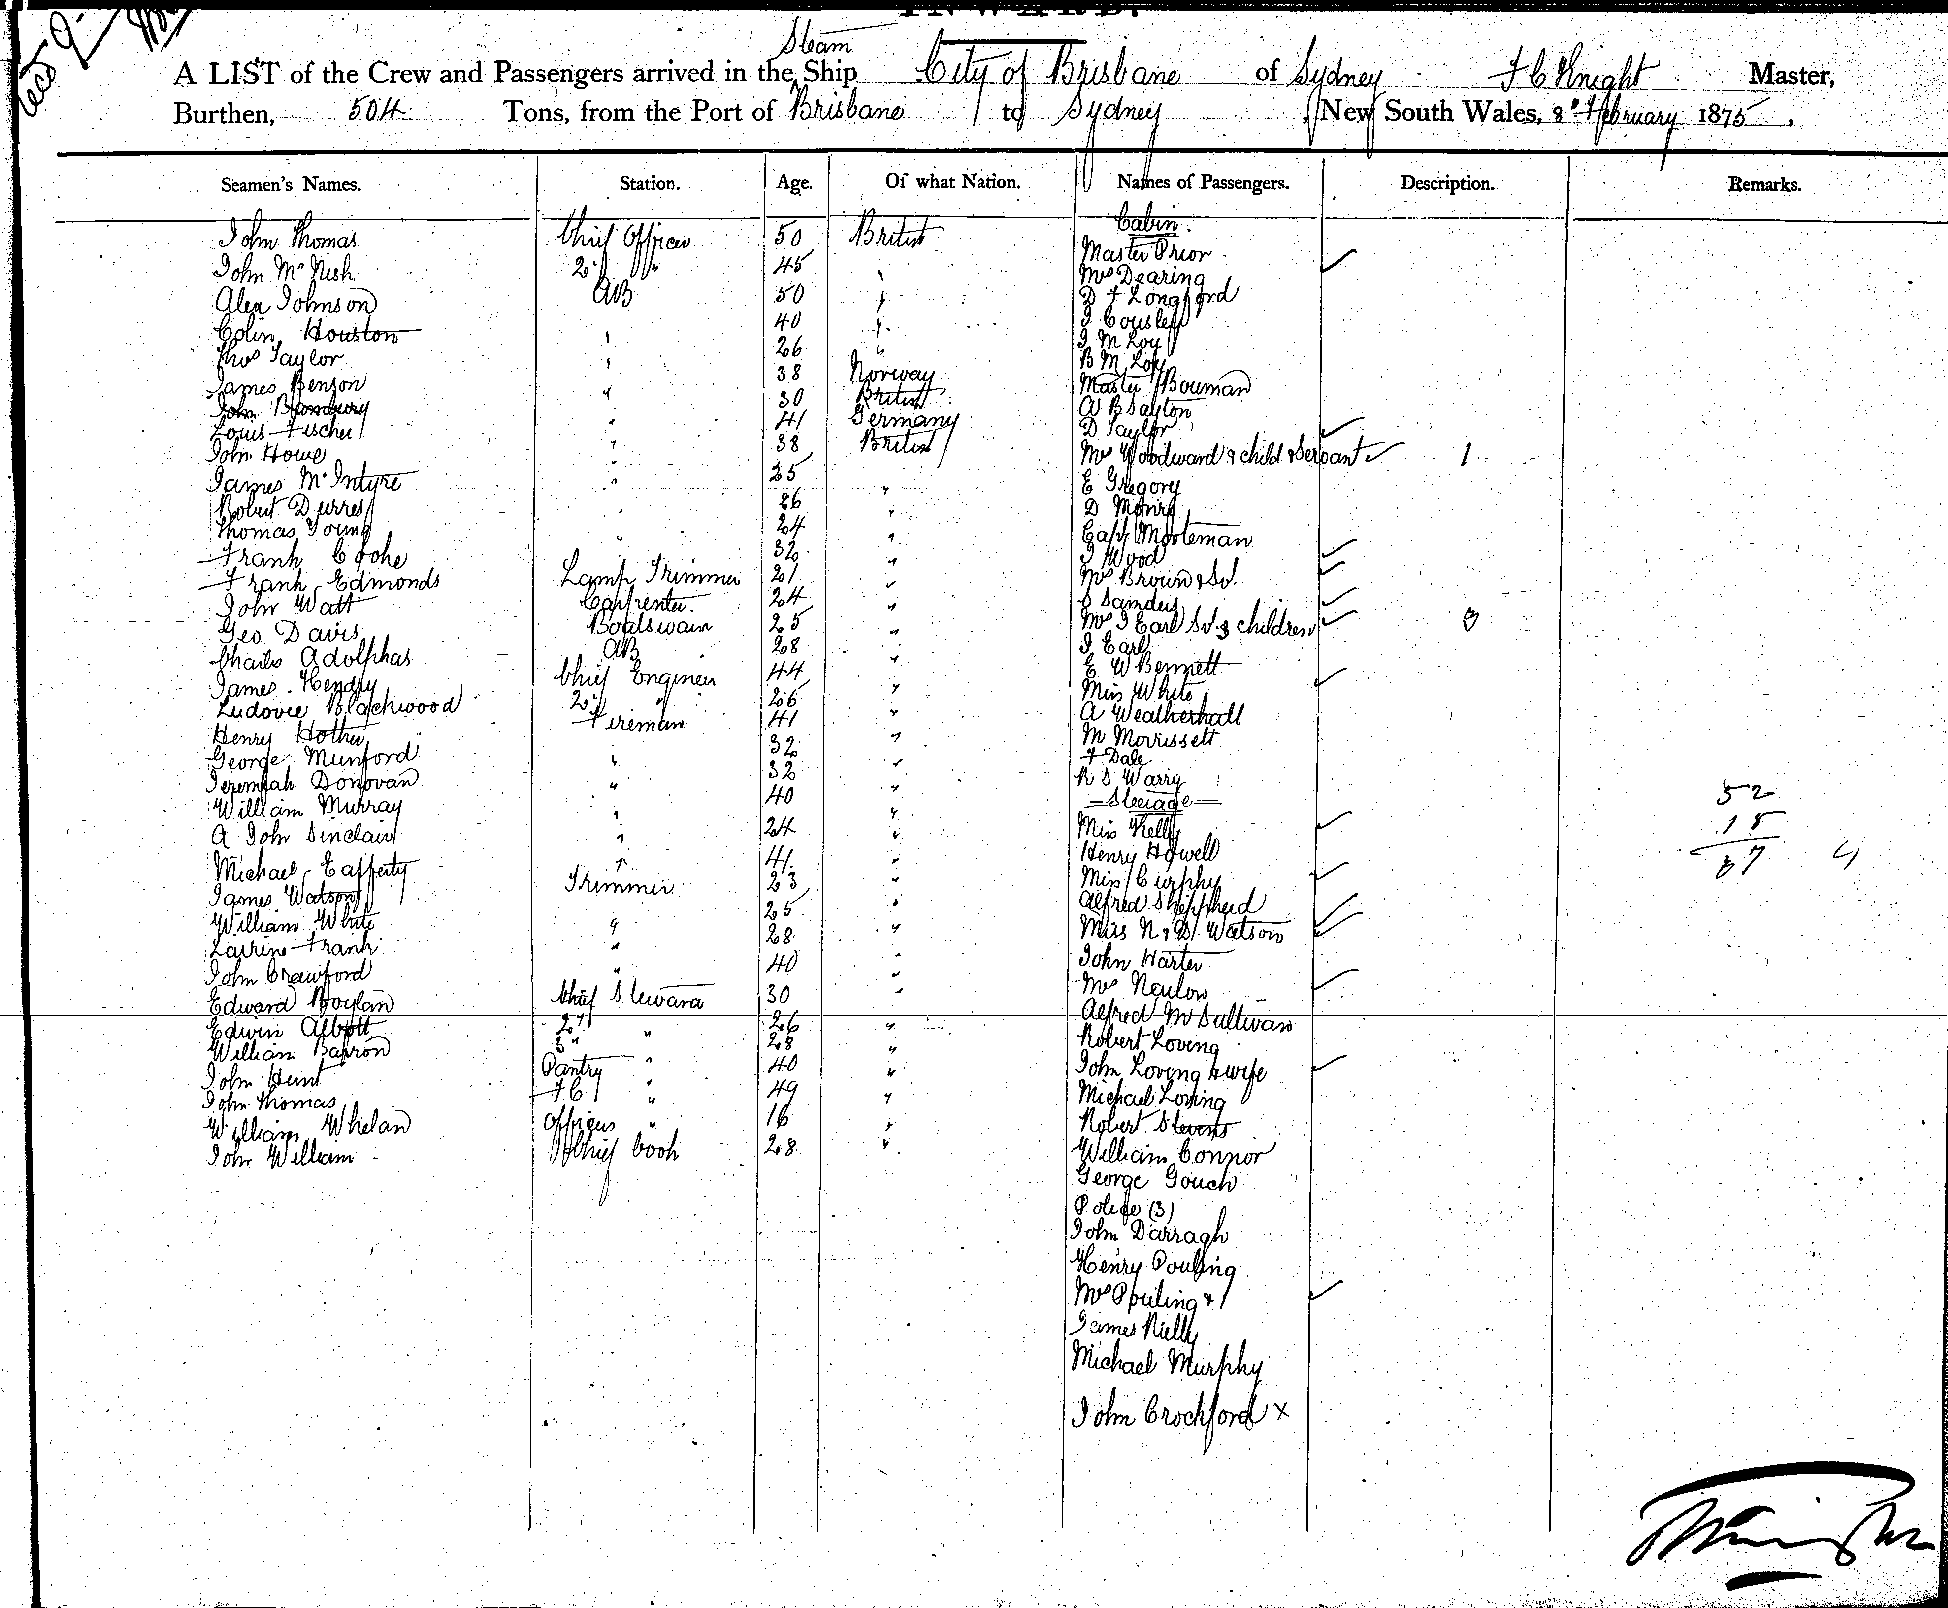 INWARD.
Steam
A LIST of the Crew and Passengers arrived in the Ship City of Brisbane of Sydney F C Knight Master,
Burthen, 504 Tons, from the Port of Brisbane to Sydney New South Wales, 8th February 1875.
Seamen's Names. Station. Age. Of what Nation. Names of Passengers. Description. Remarks.
Cabin.
John Thomas Chief Officer 50 British Master Prior
John McNish 2d " 45 " Mrs Dearing
Alex Johnson AB 50 " D F Longford
Colin Houston " 40 " J Couslett
Thos Taylor " 26 " J M Loy
James Benson " 38 Norway B M Loy
John " 30 British Master Bouman
Louis Fischer " 41 Germany A B Sayton
John Howe " 38 British D Taylor
Mrs Woodward & child & Servant 1
James McIntyre " 35 " E Gregory
Robert Durres " 26 " D Monro
Thomas Young " 24 " Capt Mooleman
Frank Cooke 32 " J Wood
Frank Edmonds Lamp Trimmer 21 " Mrs Brown & Sd.
John Watt Carpenter. 24 " Sanders
Geo Davis Boatswain 25 " Mrs J Earl Sd 3 children 3
Charles Adolphas AB 28 " J Earl
James Hendry Chief Engineer 44 " E W Bennett
Ludovic Blackwood 2d " 26 " Miss White
Henry Hother Fireman 41 " A Weatherhall
George Munford " 32 " M Morrissett
Jeremiah Donovan " 32 " F Dale
William Murray " 40 " R S Warry
Steerage 52
A John Sinclair " 24 " Miss Kelly 15
Michael Cafferty " 41 " Henry Howell 67
James Watson Trimmer 23 " Miss Curphy
William White " 25 " Alfred Shepherd
Larrine Frank " 28 " Miss N & D Watson
John Crawford " 40 " John Harter
Edward Boylan Chief Steward 30 " Mrs Newlow
Edwin Abbott 2d " 26 " Alfred McSullivan
William Barron 3d " 28 " Robert Loving
John Hunt Pantry " 40 " John Loving & wife
John Thomas F C " 49 " Michael Loving
William Whelan Officers " 16 " Robert Stevens
John William Chief Cook 28 " William Connor
George Gouch
Police (3)
John Darragh
Henry Pouling
Mrs Pouling & 1
James Rielly
Michael Murphy
John Crockford x